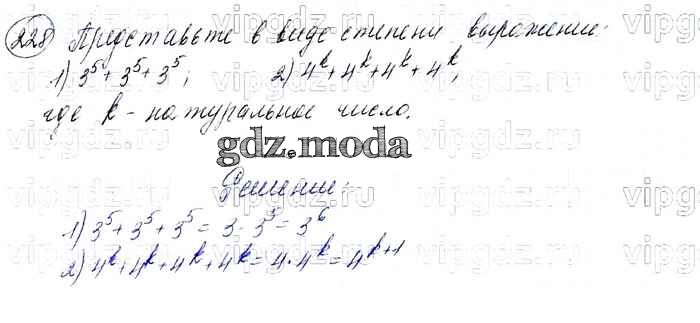 228 Представьте в виде степени выражение:
1) 3⁵+3⁵+3⁵; 2) 4ᵏ+4ᵏ+4ᵏ+4ᵏ,
где k - натуральное число.
gdz.moda
Решение:
1) 3⁵+3⁵+3⁵=3·3⁵=3⁶
2) 4ᵏ+4ᵏ+4ᵏ+4ᵏ=4·4ᵏ=4ᵏ⁺¹